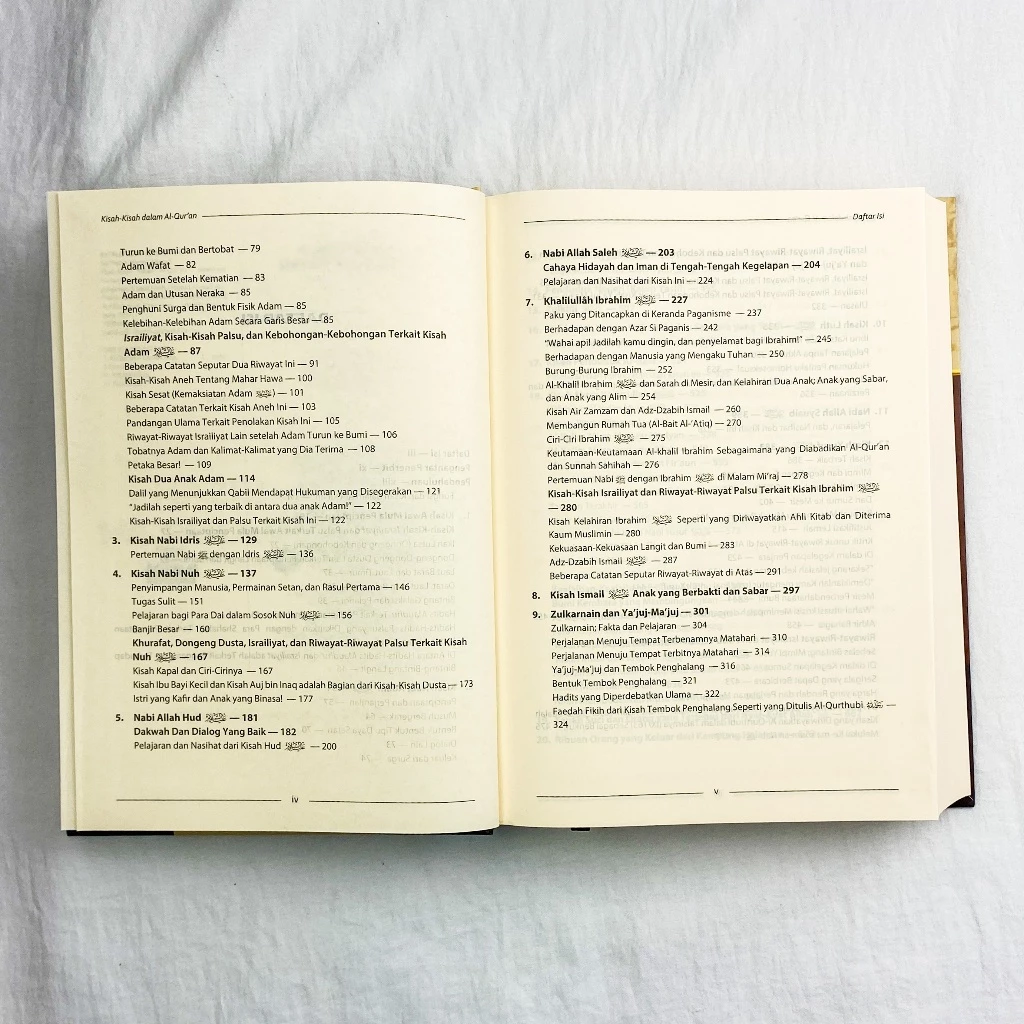 Kisah-Kisah dalam Al-Qur'an
Turun ke Bumi dan Bertobat — 79
Adam Wafat — 82
Pertemuan Setelah Kematian — 83
Adam dan Utusan Neraka — 85
Penghuni Surga dan Bentuk Fisik Adam — 85
Kelebihan-Kelebihan Adam Secara Garis Besar — 85
Israiliyat, Kisah-Kisah Palsu, dan Kebohongan-Kebohongan Terkait Kisah
Adam — 87
Beberapa Catatan Seputar Dua Riwayat Ini — 91
Kisah-Kisah Aneh Tentang Mahar Hawa — 100
Kisah Sesat (Kemaksiatan Adam) — 101
Beberapa Catatan Terkait Kisah Aneh Ini — 103
Pandangan Ulama Terkait Penolakan Kisah Ini — 105
Riwayat-Riwayat Israiliyat Lain setelah Adam Turun ke Bumi — 106
Tobatnya Adam dan Kalimat-Kalimat yang Dia Terima — 108
Petaka Besar! — 109
Kisah Dua Anak Adam — 114
Dalil yang Menunjukkan Qabil Mendapat Hukuman yang Disegerakan — 121
"Jadilah seperti yang terbaik di antara dua anak Adam!" — 122
Kisah-Kisah Israiliyat dan Palsu Terkait Kisah Ini — 122
3. Kisah Nabi Idris — 129
Pertemuan Nabi ﷺ dengan Idris — 136
4. Kisah Nabi Nuh — 137
Penyimpangan Manusia, Permainan Setan, dan Rasul Pertama — 146
Tugas Sulit — 151
Pelajaran bagi Para Dai dalam Sosok Nuh — 156
Banjir Besar — 160
Khurafat, Dongeng Dusta, Israiliyat, dan Riwayat-Riwayat Palsu Terkait Kisah
Nuh — 167
Kisah Kapal dan Ciri-Cirinya — 167
Kisah Ibu Bayi Kecil dan Kisah Auj bin Inaq adalah Bagian dari Kisah-Kisah Dusta — 173
Istri yang Kafir dan Anak yang Binasa! — 177
5. Nabi Allah Hud — 181
Dakwah Dan Dialog Yang Baik — 182
Pelajaran dan Nasihat dari Kisah Hud — 200
iv
Daftar Isi
6. Nabi Allah Saleh — 203
Cahaya Hidayah dan Iman di Tengah-Tengah Kegelapan — 204
Pelajaran dan Nasihat dari Kisah Ini — 224
7. Khalilullâh Ibrahim — 227
Paku yang Ditancapkan di Keranda Paganisme — 237
Berhadapan dengan Azar Si Paganis — 242
"Wahai api! Jadilah kamu dingin, dan penyelamat bagi Ibrahim!" — 245
Berhadapan dengan Manusia yang Mengaku Tuhan — 250
Burung-Burung Ibrahim — 252
Al-Khalil Ibrahim dan Sarah di Mesir, dan Kelahiran Dua Anak; Anak yang Sabar,
dan Anak yang Alim — 254
Kisah Air Zamzam dan Adz-Dzabih Ismail — 260
Membangun Rumah Tua (Al-Bait Al-'Atiq) — 270
Ciri-Ciri Ibrahim — 275
Keutamaan-Keutamaan Al-khalil Ibrahim Sebagaimana yang Diabadikan Al-Qur'an
dan Sunnah Sahihah — 276
Pertemuan Nabi ﷺ dengan Ibrahim di Malam Mi'raj — 278
Kisah-Kisah Israiliyat dan Riwayat-Riwayat Palsu Terkait Kisah Ibrahim
— 280
Kisah Kelahiran Ibrahim Seperti yang Diriwayatkan Ahli Kitab dan Diterima
Kaum Muslimin — 280
Kekuasaan-Kekuasaan Langit dan Bumi — 283
Adz-Dzabih Ismail — 287
Beberapa Catatan Seputar Riwayat-Riwayat di Atas — 291
8. Kisah Ismail Anak yang Berbakti dan Sabar — 297
9. Zulkarnain dan Ya'juj-Ma'juj — 301
Zulkarnain; Fakta dan Pelajaran — 304
Perjalanan Menuju Tempat Terbenamnya Matahari — 310
Perjalanan Menuju Tempat Terbitnya Matahari — 314
Ya'juj-Ma'juj dan Tembok Penghalang — 316
Bentuk Tembok Penghalang — 321
Hadits yang Diperdebatkan Ulama — 322
Faedah Fikih dari Kisah Tembok Penghalang Seperti yang Ditulis Al-Qurthubi —
324
v